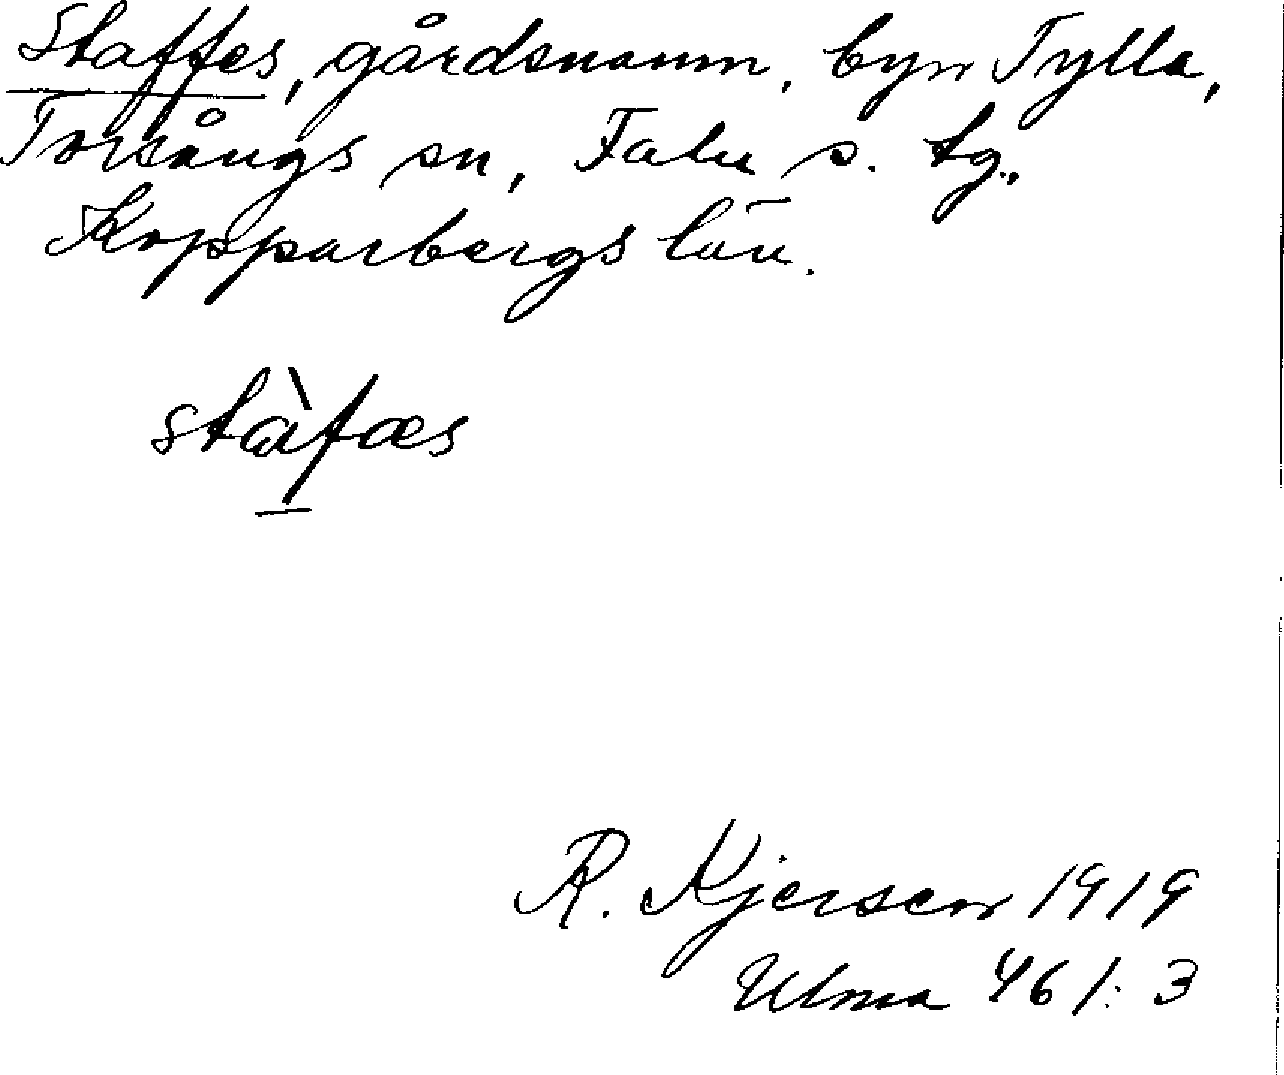 Staffes, gårdsnamn, byn Tylla,
Torsångs sn, Falu s. tg.,
Kopparbergs län.
stàfæs
R. Kjersen 1919
Ulma 461:3